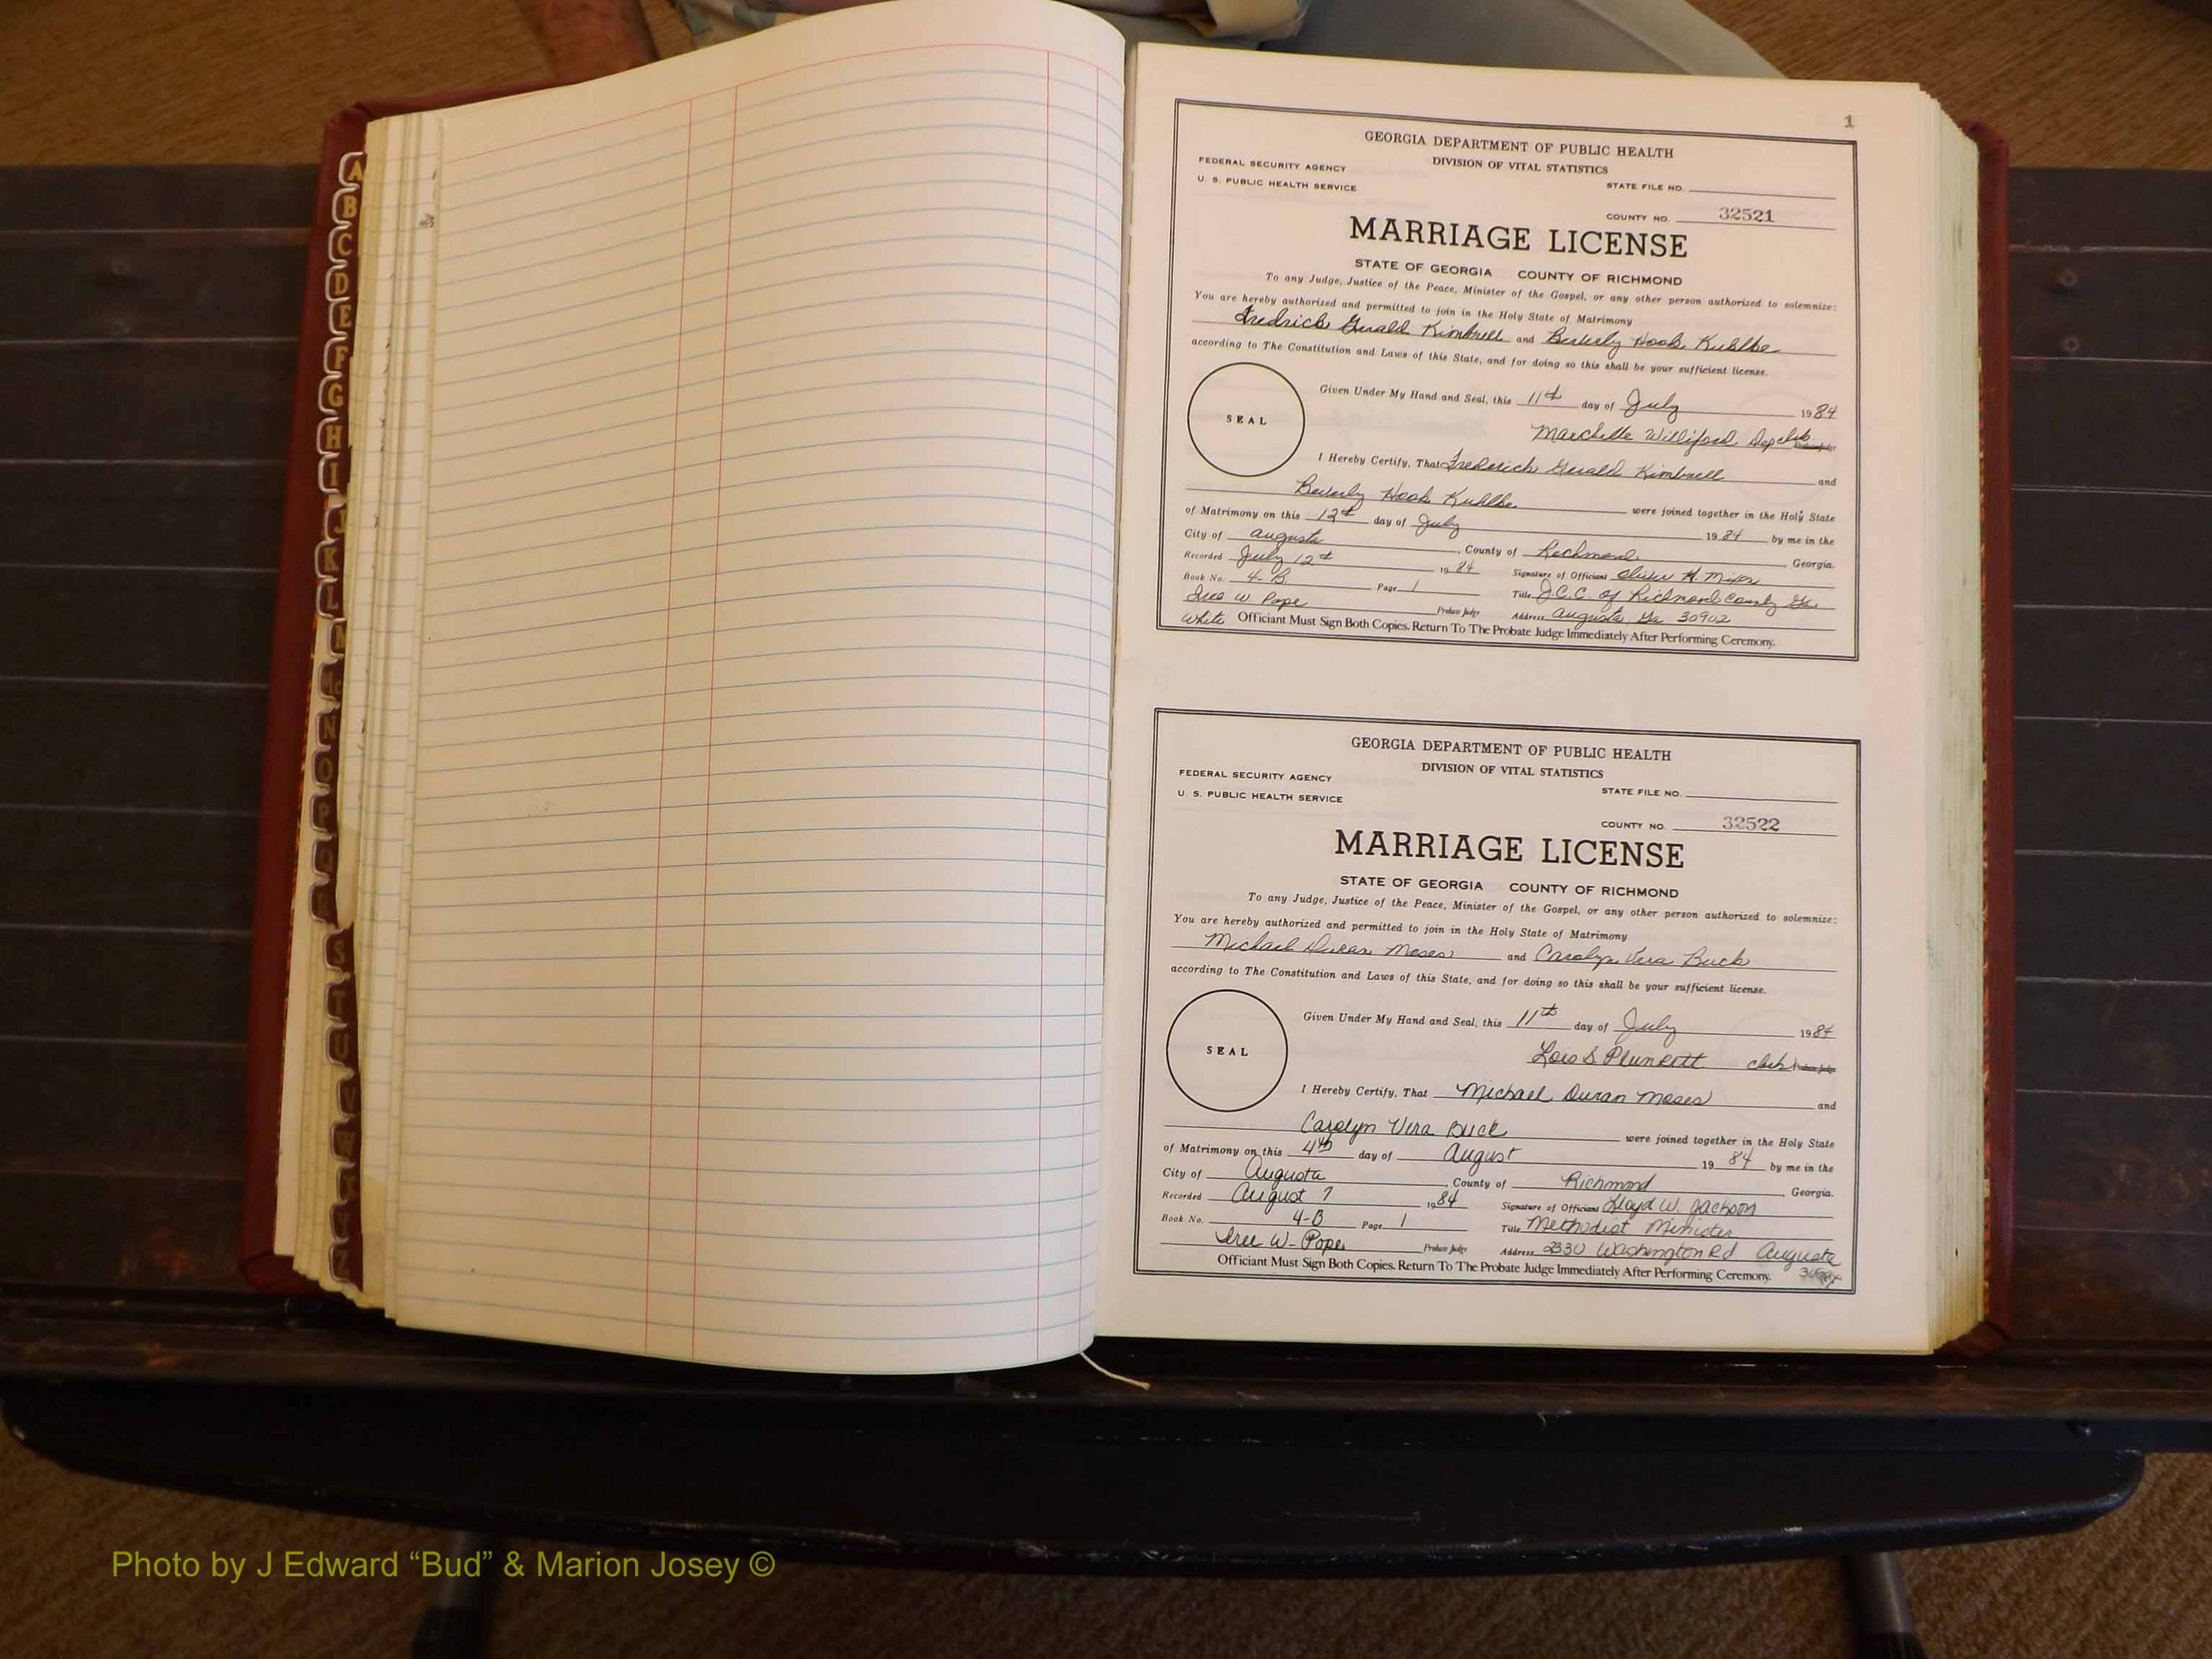 A
B
C
D
E
F
G
H
I
J
K
L
M
Mc
N
O
P
Q
R
S
T
U
V
W
X
Y
Z
1
GEORGIA DEPARTMENT OF PUBLIC HEALTH
DIVISION OF VITAL STATISTICS
FEDERAL SECURITY AGENCY
U. S. PUBLIC HEALTH SERVICE
STATE FILE NO.
COUNTY NO. 32521
MARRIAGE LICENSE
STATE OF GEORGIA COUNTY OF RICHMOND
To any Judge, Justice of the Peace, Minister of the Gospel, or any other person authorized to solemnize:
You are hereby authorized and permitted to join in the Holy State of Matrimony
Fredrick Gerald Kimbrell and Beverly Hook Kuhlke
according to The Constitution and Laws of this State, and for doing so this shall be your sufficient license.
SEAL
Given Under My Hand and Seal, this 11th day of July 1984
Marchelle Williford, Dep clk
I Hereby Certify, That Frederick Gerald Kimbrell and
Beverly Hook Kuhlke were joined together in the Holy State
of Matrimony on this 12th day of July 1984 by me in the
City of Augusta, County of Richmond, Georgia.
Recorded July 12th 1984 Signature of Officiant Oliver K. Mixon
Book No. 4-B Page 1 Title J.C.C. of Richmond County Ga
Iree W. Pope Probate Judge Address Augusta, Ga 30902
White Officiant Must Sign Both Copies. Return To The Probate Judge Immediately After Performing Ceremony.
GEORGIA DEPARTMENT OF PUBLIC HEALTH
DIVISION OF VITAL STATISTICS
FEDERAL SECURITY AGENCY
U. S. PUBLIC HEALTH SERVICE
STATE FILE NO.
COUNTY NO. 32522
MARRIAGE LICENSE
STATE OF GEORGIA COUNTY OF RICHMOND
To any Judge, Justice of the Peace, Minister of the Gospel, or any other person authorized to solemnize:
You are hereby authorized and permitted to join in the Holy State of Matrimony
Michael Duran Moses and Carolyn Vera Buck
according to The Constitution and Laws of this State, and for doing so this shall be your sufficient license.
SEAL
Given Under My Hand and Seal, this 11th day of July 1984
Lois S Plunkett clerk Probate Judge
I Hereby Certify, That Michael Duran Moses and
Carolyn Vera Buck were joined together in the Holy State
of Matrimony on this 4th day of August 1984 by me in the
City of Augusta, County of Richmond, Georgia.
Recorded August 7 1984 Signature of Officiant Lloyd W. Jackson
Book No. 4-B Page 1 Title Methodist Minister
Iree W. Pope Probate Judge Address 2330 Washington Rd Augusta
Officiant Must Sign Both Copies. Return To The Probate Judge Immediately After Performing Ceremony.
Photo by J Edward “Bud” & Marion Josey ©